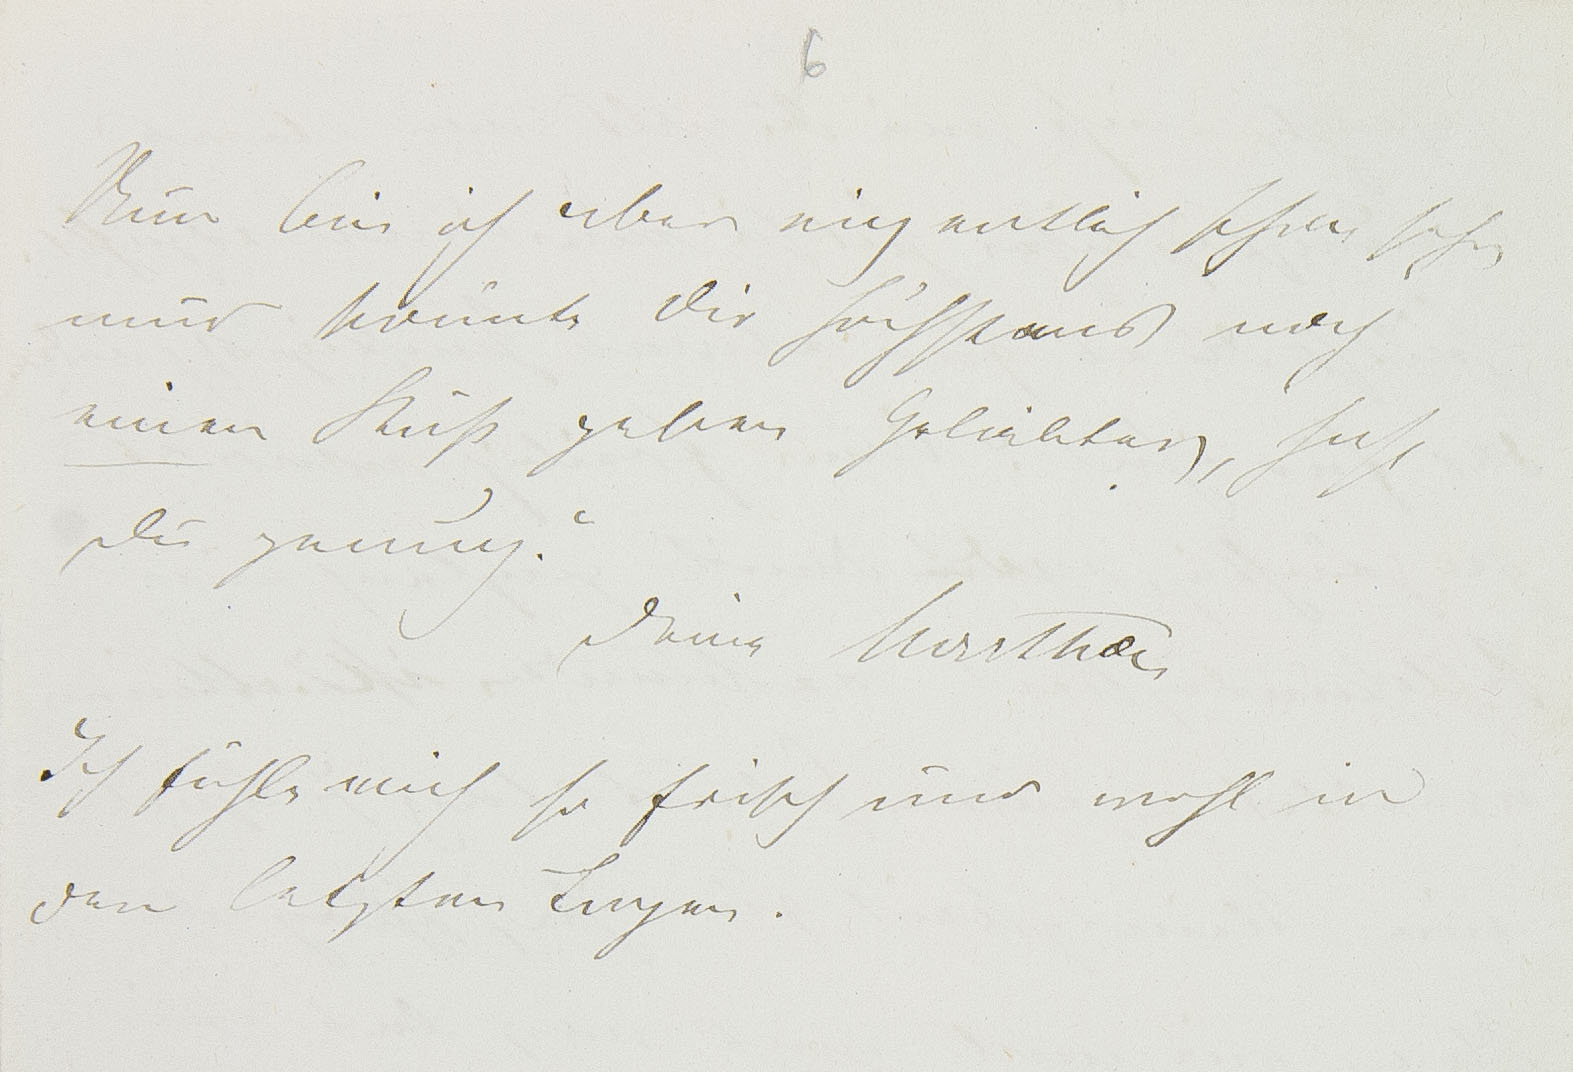 6
Nun bin ich aber eigentlich schon sehr
und könnte Dir höchstens noch
einen Kuß geben Geliebter, hast
Du genug?
Deine Martha
Ich fühle mich so frisch und wohl in
den letzten Tagen.